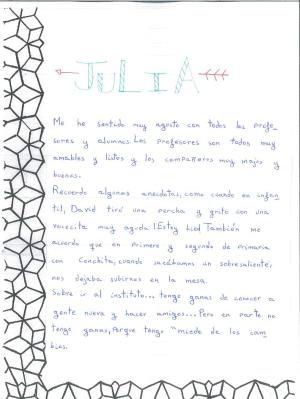 JULIA
Me he sentido muy agusto con todos los profe_
sores y alumnos. Los profesores son todos muy
amables y listos y los compañeros muy majos y
buenos.
Recuerdo algunas anecdotas, como cuando en infan_
til, David tiró una percha y grito con una
vocecita muy aguda: ¡Estoy loco! También me
acuerdo que en primero y segundo de primaria
con Conchita, cuando sacábamos un sobresaliente,
nos dejaba subirnos en la mesa.
Sobre ir al instituto... tengo ganas de conocer a
gente nueva y hacer amigos... Pero en parte no
tengo ganas, porque tengo miedo de los cam_
bios.